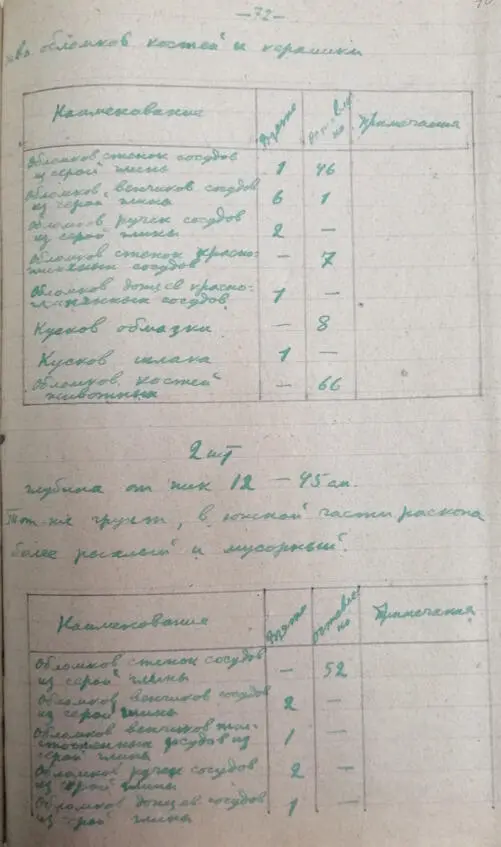 —72—
обломков костей и керамики
Наименование Взято Оставлено Примечания
Обломков стенок сосудов
из серой глины 1 46
Обломков венчиков сосудов
из серой глины 6 1
Обломков ручек сосудов
из серой глины 2 —
Обломков стенок красно-
глиняных сосудов — 7
Обломков донцев красно-
глиняных сосудов 1 —
Кусков обмазки — 8
Кусков шлака 1 —
Обломков костей
животных — 66
2 шт
Глубина от ник 12 — 45 см.
Тот же грунт, в южной части раскопа
более рыхлый и мусорный.
Наименование Взято оставлено Примечания
Обломков стенок сосудов
из серой глины — 52
Обломков венчиков сосудов
из серой глины 2 —
Обломков венчиков
сосудов из
серой глины 1 —
Обломков ручек сосудов
из серой глины 2 —
Обломков донцев сосудов
из серой глины 1 —